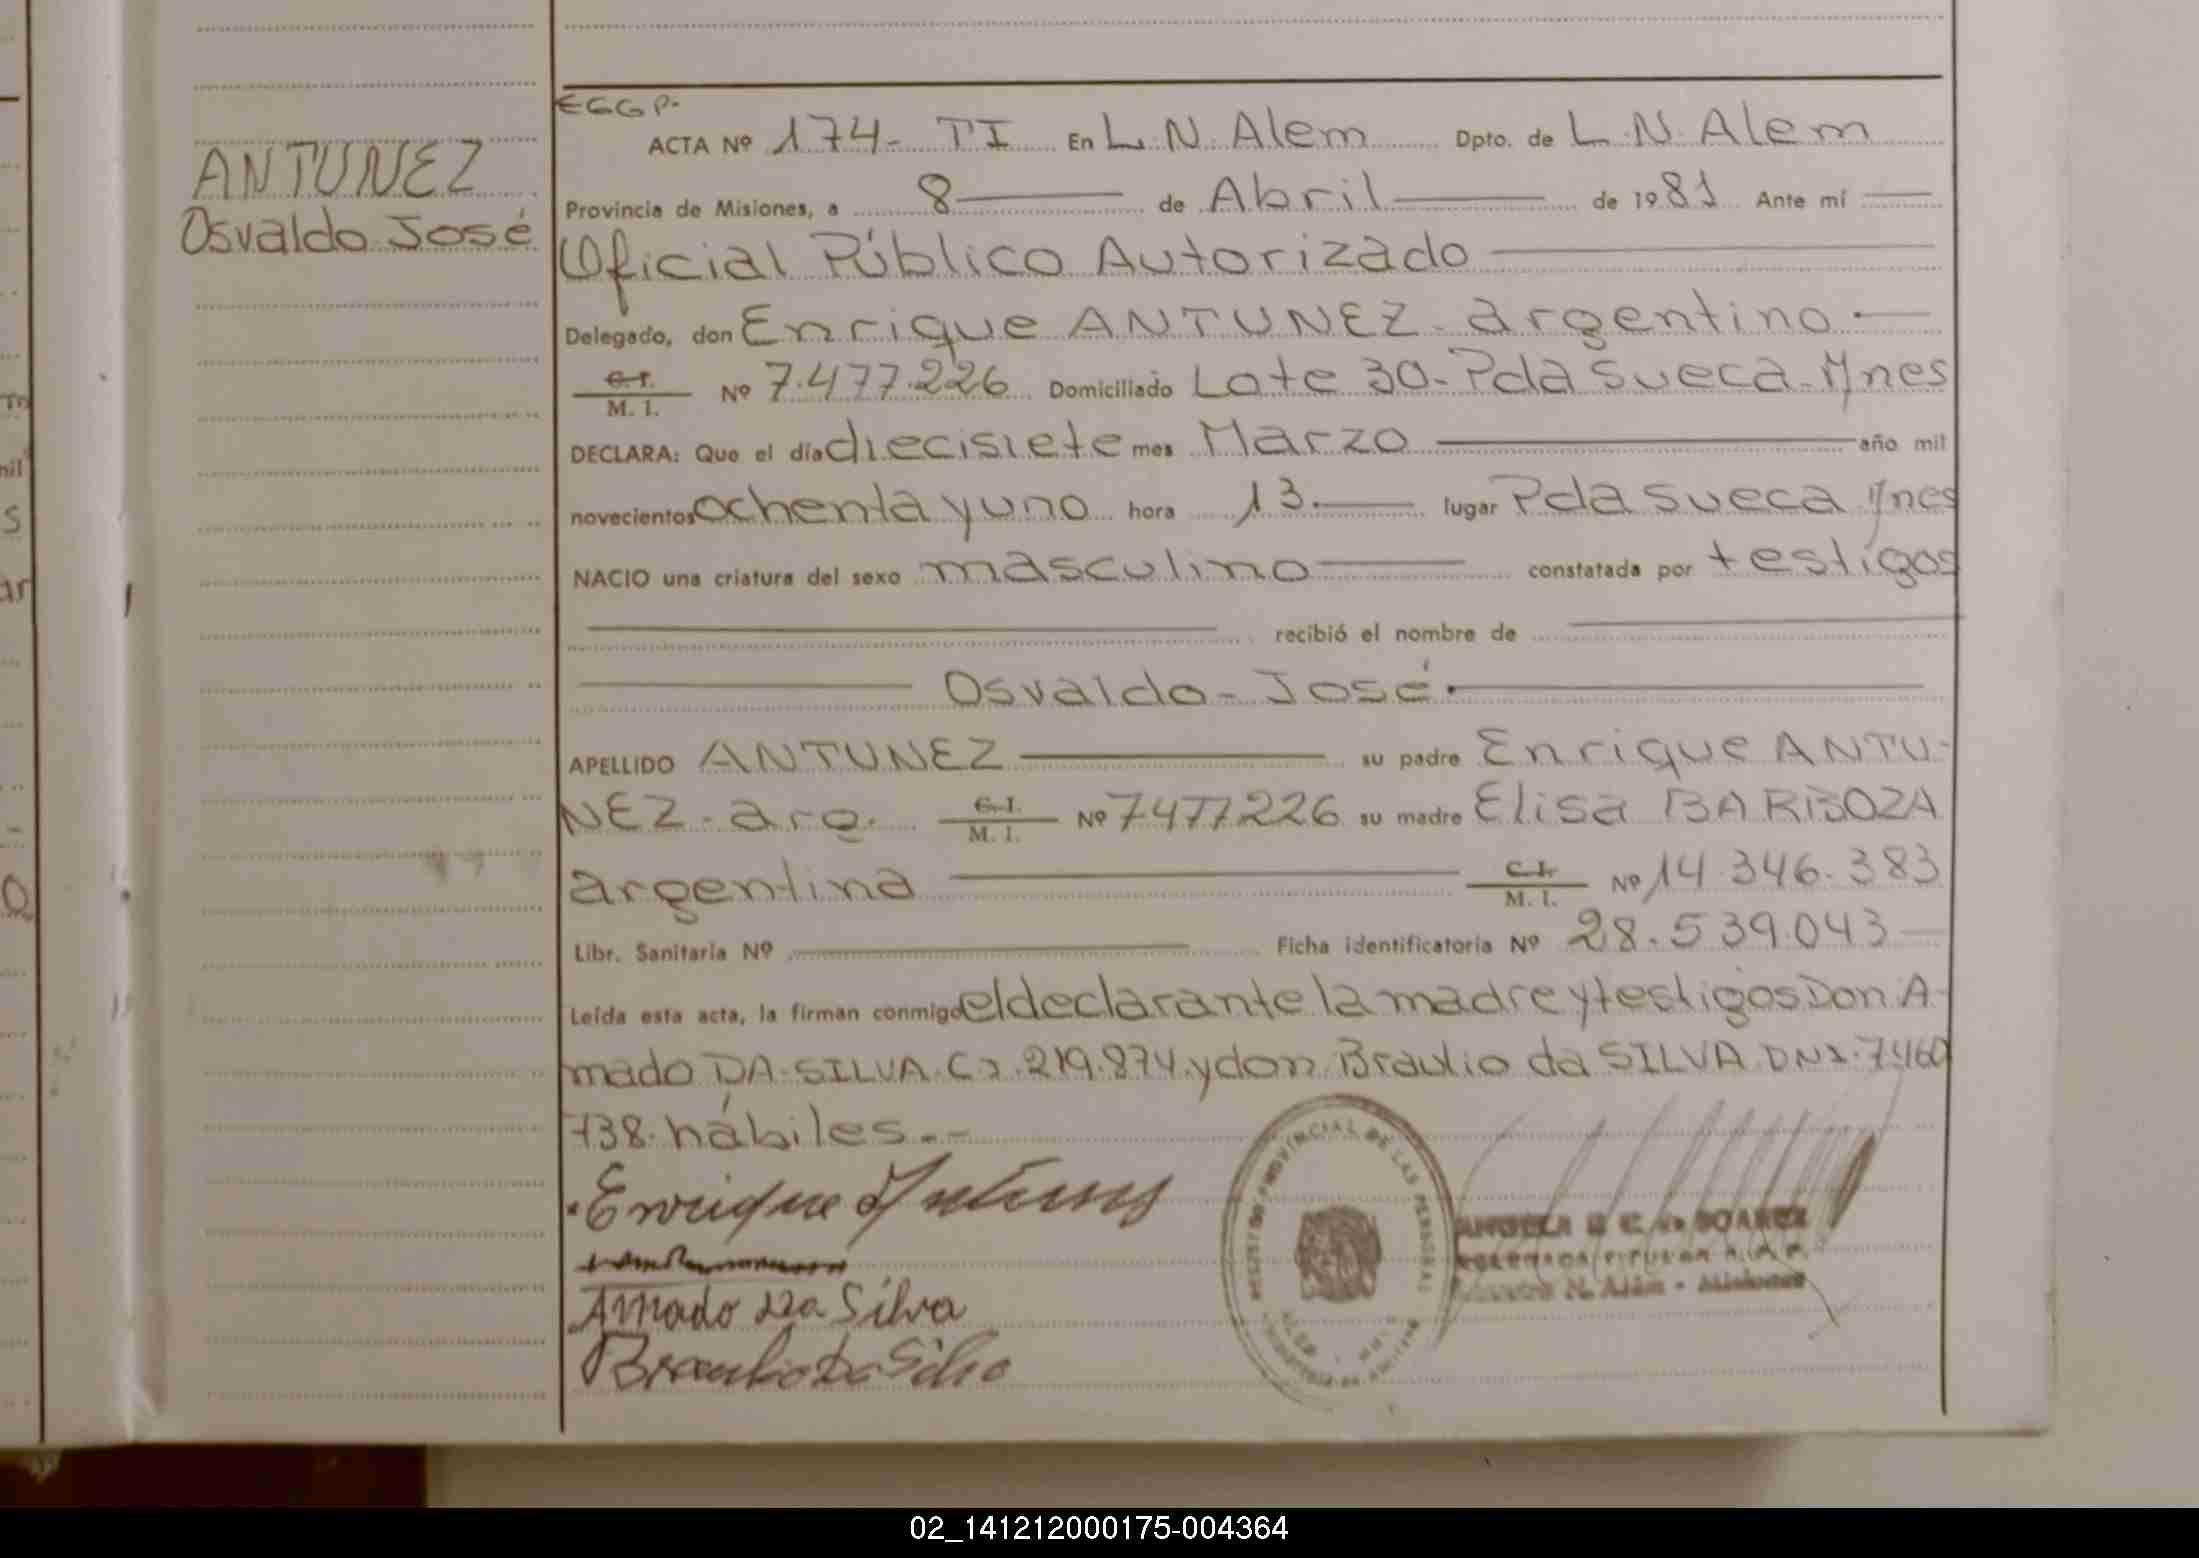 ANTUNEZ
Osvaldo José
EGGP.
ACTA Nº 174- TI En L. N. Alem Dpto. de L. N. Alem
Provincia de Misiones, a 8 de Abril de 1981 Ante mí
Oficial Público Autorizado
Delegado, don Enrique ANTUNEZ - argentino.
C. I.
M. I. Nº 7.477.226 Domiciliado Lote 30- Pda Sueca - Mnes
DECLARA: Que el día diecisiete mes Marzo año mil
novecientos ochenta y uno hora 13. lugar Pda Sueca Mnes
NACIO una criatura del sexo masculino constatada por testigos
recibió el nombre de
Osvaldo - José.
APELLIDO ANTUNEZ su padre Enrique ANTU-
NEZ - arg. C. I. M. I. Nº 7477226 su madre Elisa BARBOZA
argentina C. I. M. I. Nº 14.346.383
Libr. Sanitaria Nº Ficha identificatoria Nº 28.539.043
Leída esta acta, la firman conmigo el declarante la madre y testigos Don A-
mado DA-SILVA. CI. 219.874. y don Braulio da SILVA DNI. 7.460
738. hábiles.-
Enrique Antunez
Amado Da Silva
Braulio Da Silva
PROVINCIAL DE LAS PERSONAS
ANGELA C. de SOAREZ
DELEGADA TITULAR
N. Alem - Misiones
02_141212000175-004364